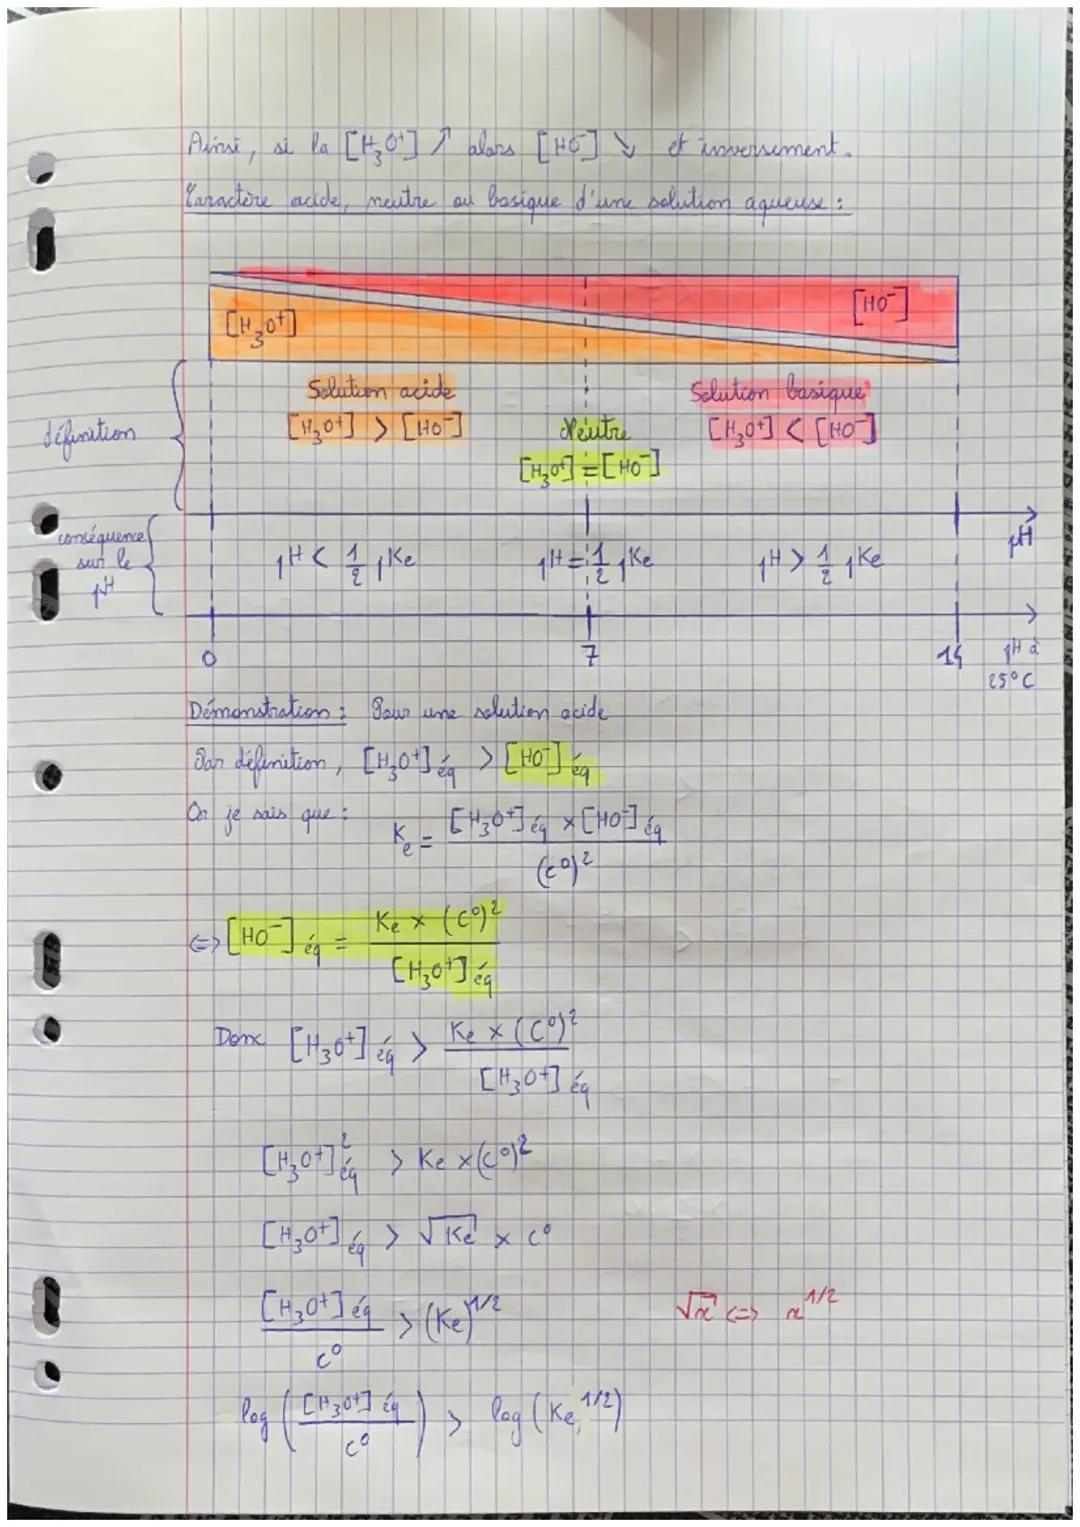 Ainsi, si la [H₃O⁺] ↗ alors [HO⁻] ↘ et inversement.
Caractère acide, neutre ou basique d'une solution aqueuse :
[HO⁻]
[H₃O⁺]
Solution acide
Solution basique
définition
[H₃O⁺] > [HO⁻]
Neutre
[H₃O⁺] < [HO⁻]
[H₃O⁺] = [HO⁻]
conséquence
sur le
pH
pH < 1/2 pKe
pH = 1/2 pKe
pH > 1/2 pKe
pH
0
7
14
pH à
25°C
Démonstration : Pour une solution acide
Par définition, [H₃O⁺]éq > [HO⁻]éq
Or je sais que :
Ke = [H₃O⁺]éq × [HO⁻]éq / (c⁰)²
⇔ [HO⁻]éq = Ke × (C⁰)² / [H₃O⁺]éq
Donc [H₃O⁺]éq > Ke × (C⁰)² / [H₃O⁺]éq
[H₃O⁺]²éq > Ke × (c⁰)²
[H₃O⁺]éq > √Ke × c⁰
[H₃O⁺]éq / c⁰ > (Ke)^1/2
√x ⇔ x^1/2
log ([H₃O⁺]éq / c⁰) > log (Ke^1/2)